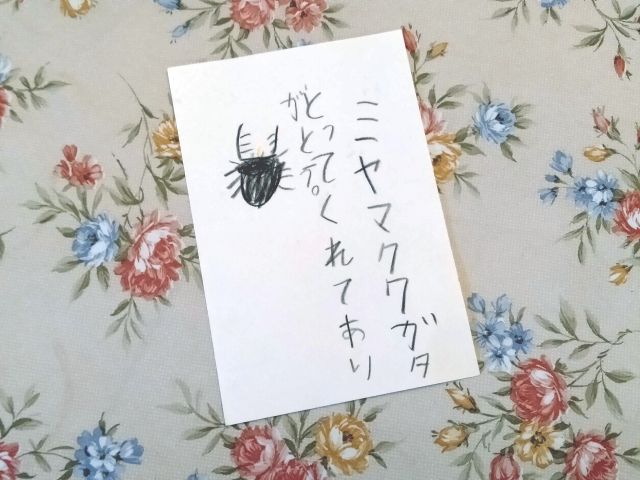 ミヤマクワガタ
とってくれてあり
がとう。